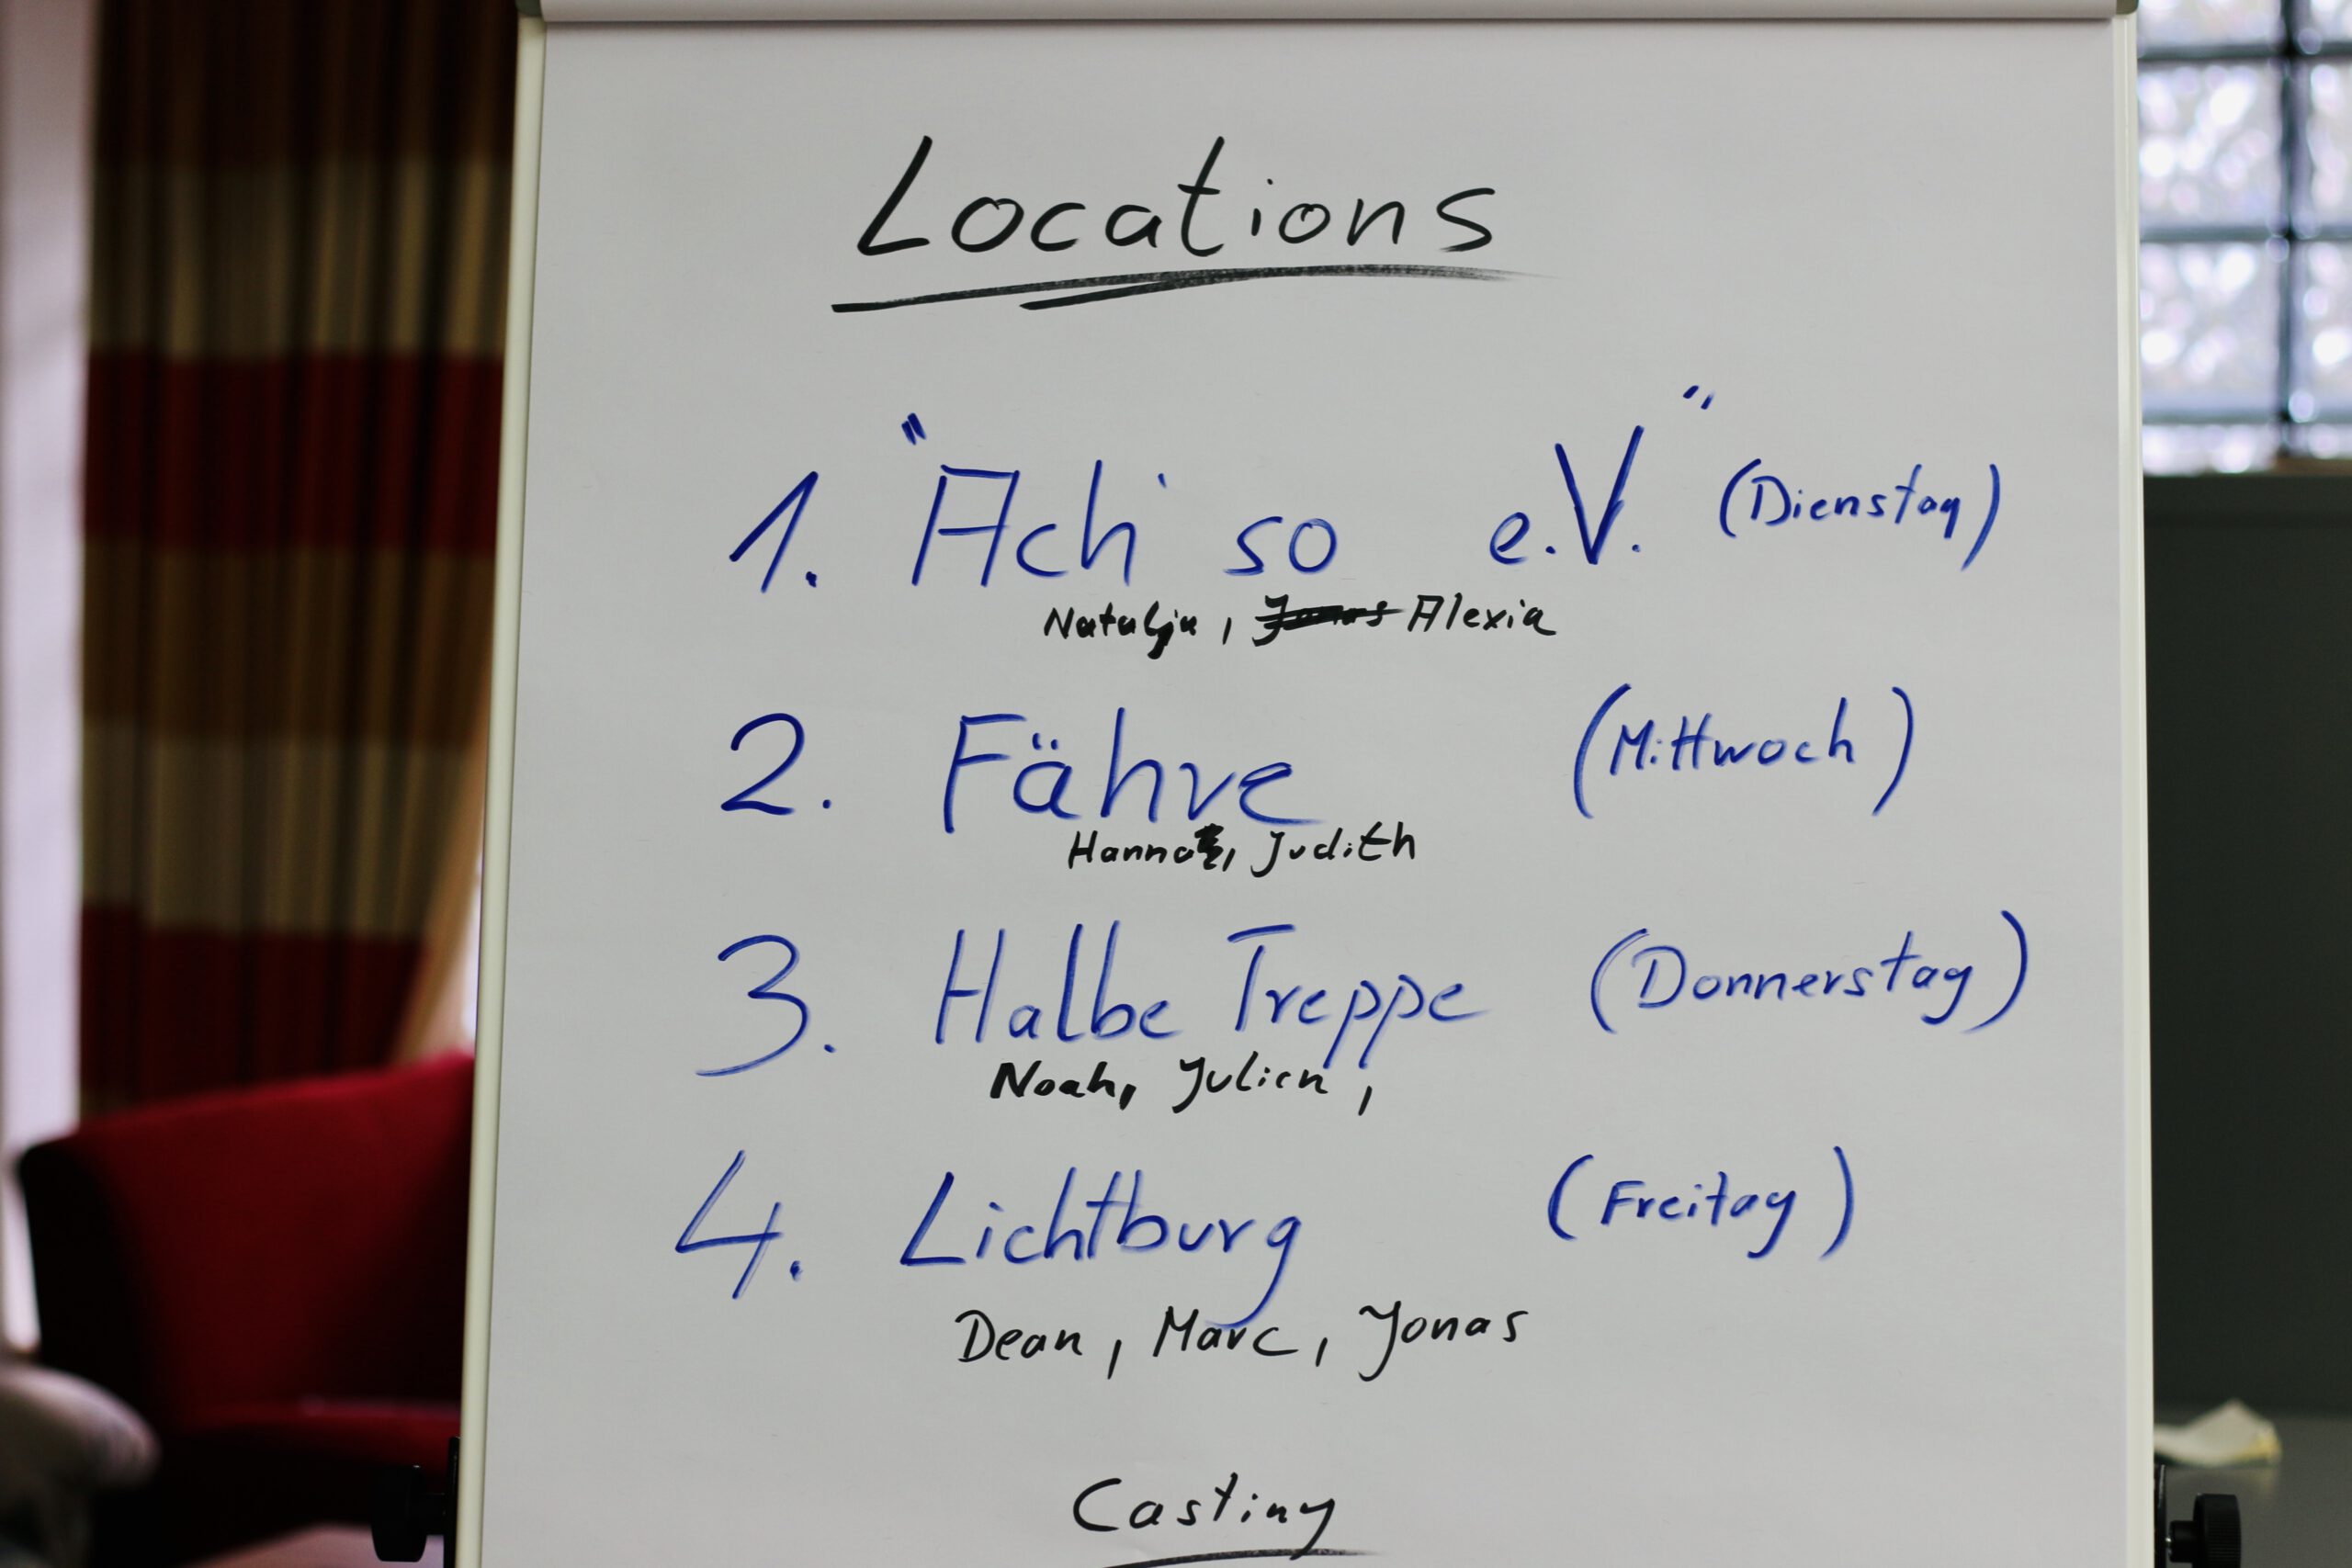 Locations
1. "Ach so e.V." (Dienstag)
Natalja, Jonas Alexia
2. Fähre (Mittwoch)
Hanna, Judith
3. Halbe Treppe (Donnerstag)
Noah, Julien,
4. Lichtburg (Freitag)
Dean, Marc, Jonas
Casting